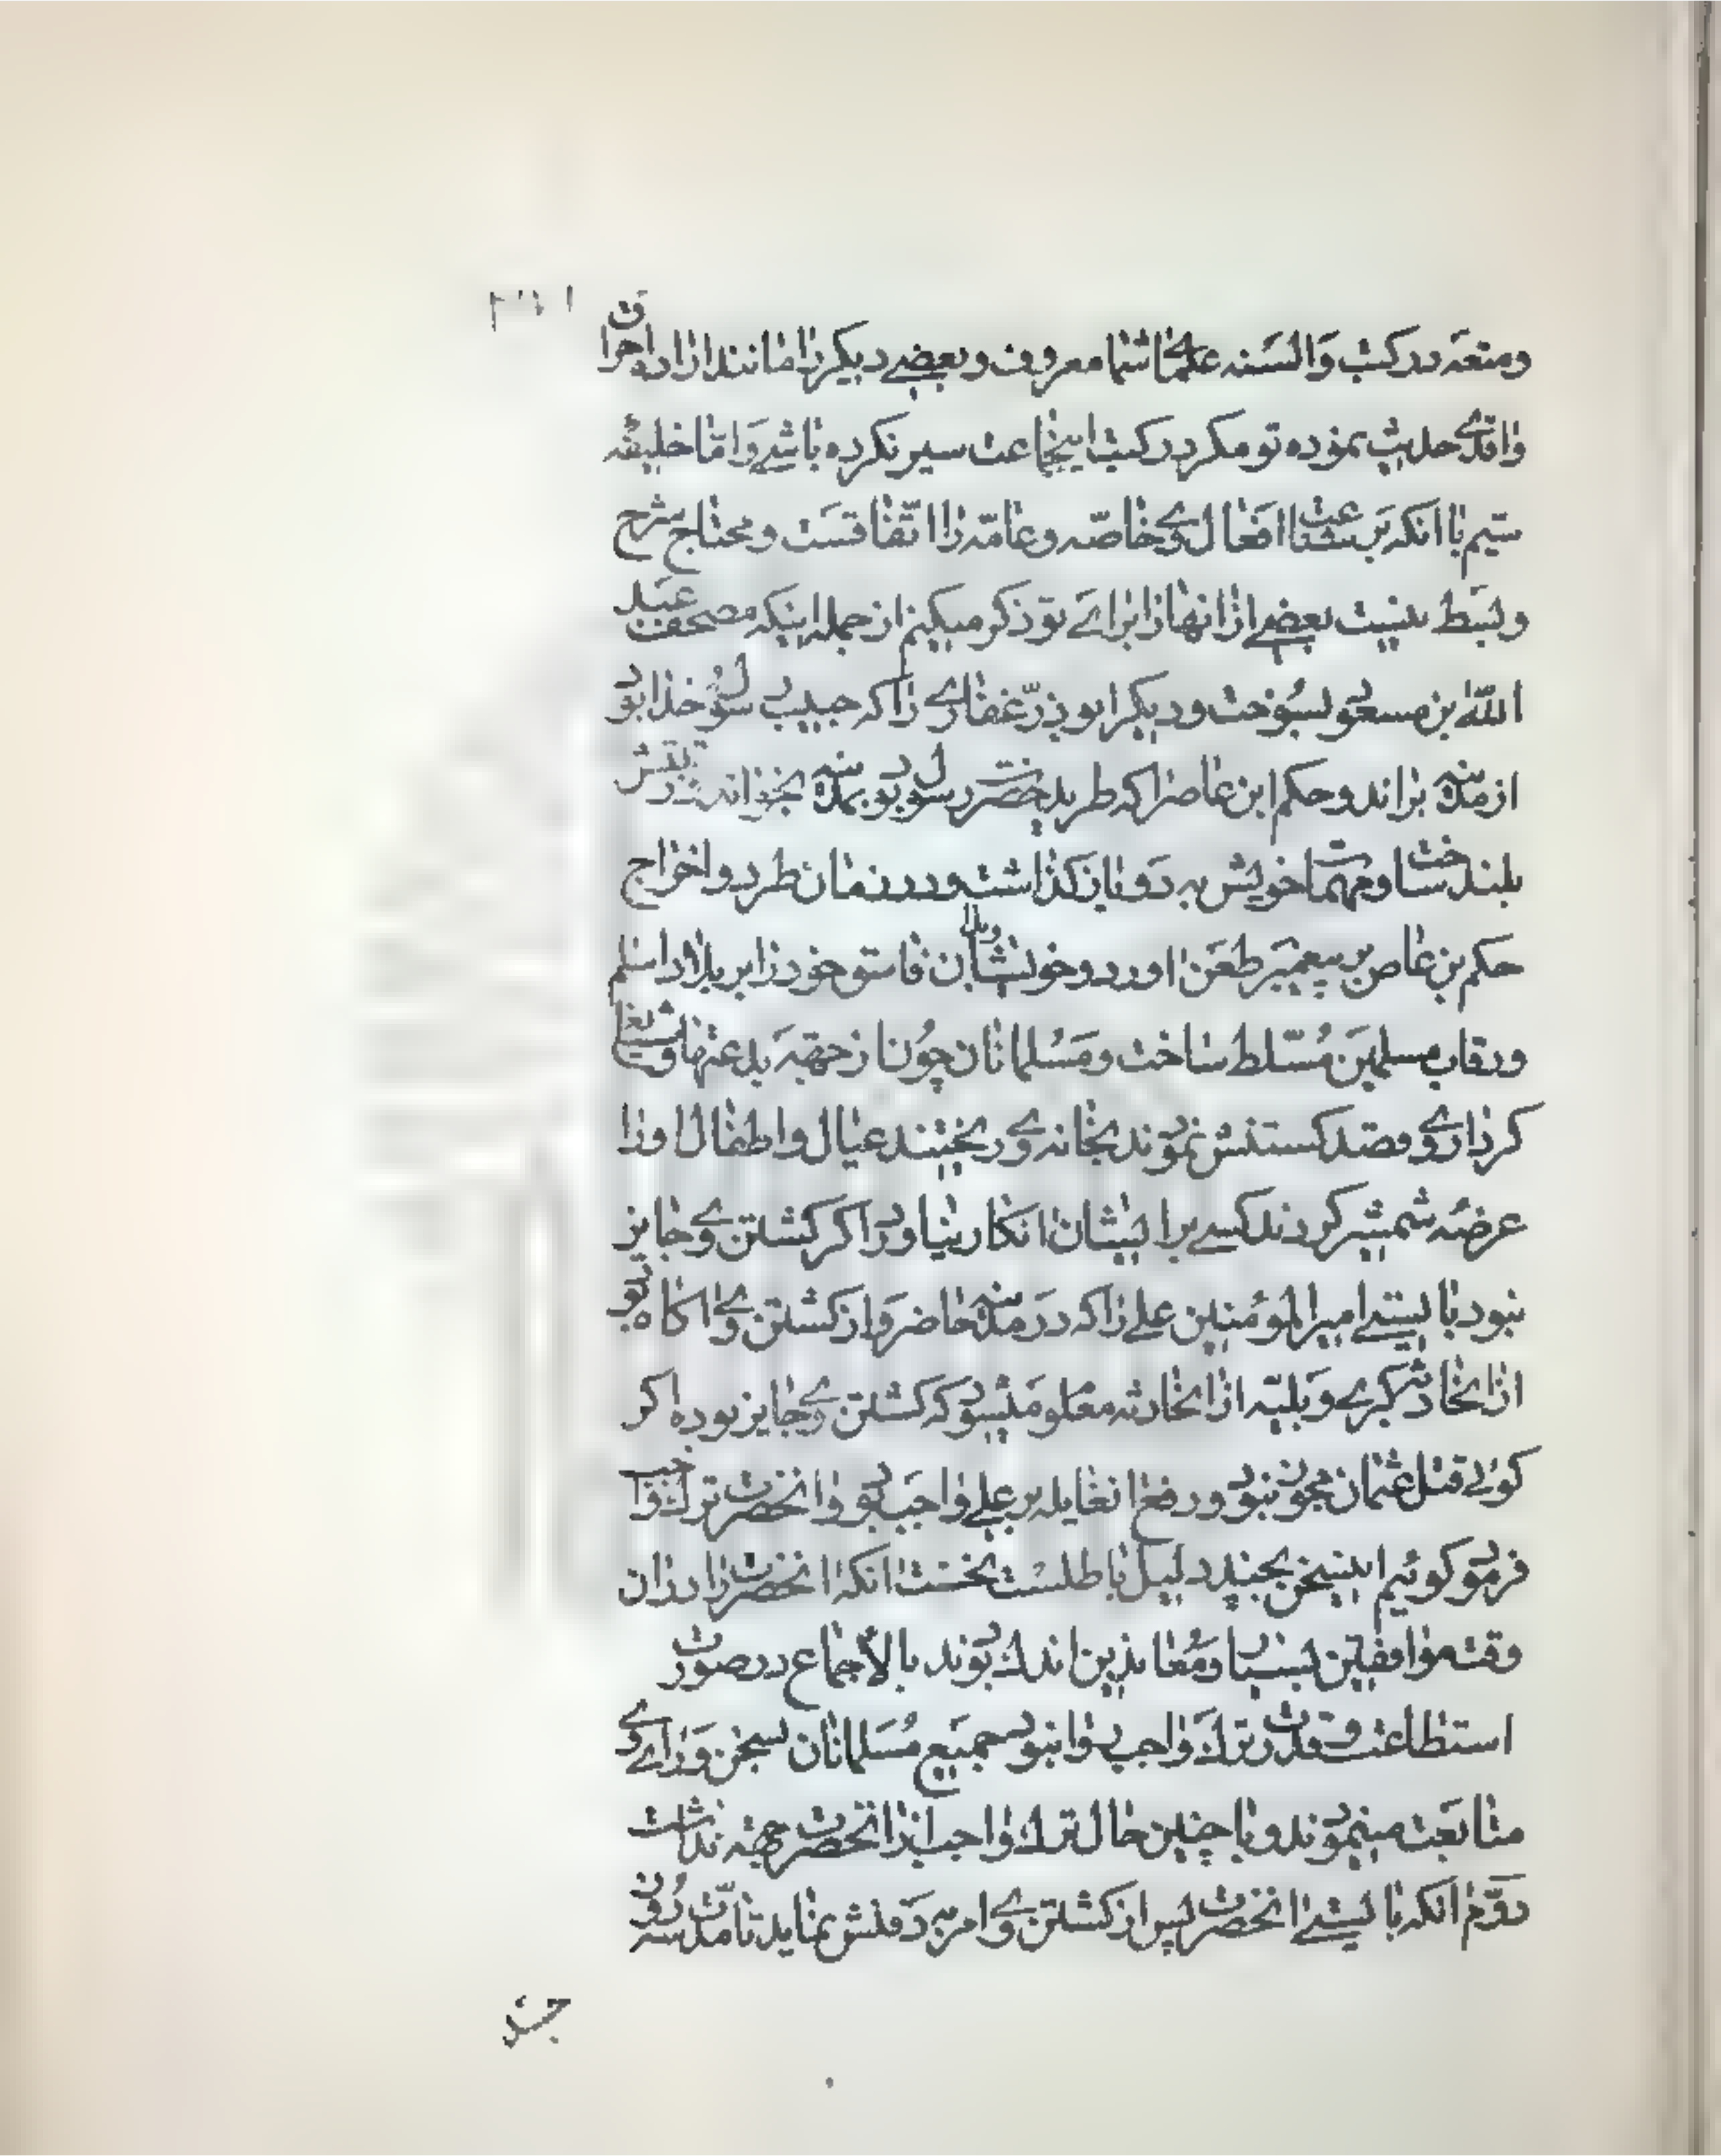 ومتعه در کتب والسنه علمای شما معروف وبعضی دیگر را مانند اراده احراق
واقدی حدیث نموده تو مگر در کتب اینجماعت سیر نکرده باشی واما خلیفه
سیم با آنکه بر شناعت افعال وی خاصه وعامه را اتفاقست ومحتاج شرح
وبسط نیست بعضی از آنها را برای تو ذکر میکنم از جمله اینکه مصحف عبد
الله بن مسعود بسوخت ودیگر ابوذر غفاری را که حبیب رسول خدا بود
از مدینه براند وحکم ابن عاص را که طرید حضرت رسول بود بمدینه بخواند
بلند ساخت ومهمات خویش به وی باز گذاشت ودر زمان طرد واخراج
حکم بن عاص بر پیغمبر طعن آورد وخویشان فاسق خود را بر بلاد اسلام
ورقاب مسلمین مسلط ساخت ومسلمانان چون از جهة بدعتها
کردار وی وقصد کشتنش نمودند بخانه وی ریختند عیال واطفال او را
عرضه شمشیر کردند کسی بر ایشان انکار نیاورد اگر کشتن وی جایز
نبود بایستی امیر المؤمنین علی را که در مدینه حاضر واز کشتن وی آگاه بود
از اتحادثه کبری وبلیه از اتحادثه معلوم میشود که کشتن وی جایز بوده اگر
گوئی قتل عثمان مجوز نبود ورفع انغایله بر علی واجب بود وانحضرت ترک واجب
فرمود گوئیم اینسخن بچند دلیل باطلست نخست آنکه انحضرت را در آن
وقت موافقین بسیار ومعاندین اندک بودند بالاجماع در صورت
استطاعت وقدرت ترک واجب روا نبود جمیع مسلمانان سخن ورای وی
متابعت مینمودند وبا چنین حال ترک واجب از انحضرت جهة نداشت
دوم آنکه بایستی انحضرت پس از کشتن وی امر به دفنش نماید تا مدت سه روز
جسد